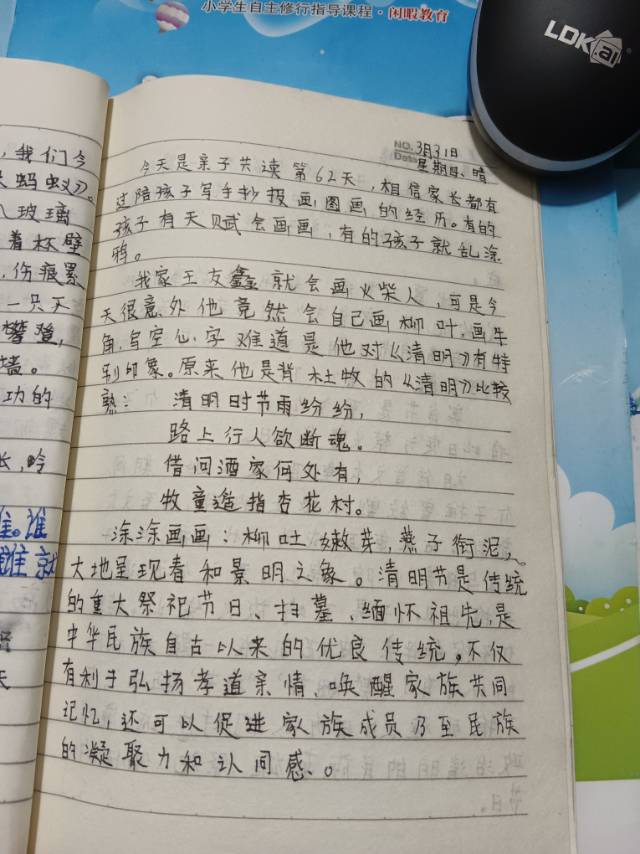 小学生自主修行指导课程·闲暇教育
LDK.ai
，我们今
蚂蚁》。
玻璃
着杯壁
，伤痕累
一只不
攀登，
墙。
功的
长，吟
难。谁
难就
NO. 3月31日
Date 星期日 晴
今天是亲子共读第62天，相信家长都有
过陪孩子写手抄报画图画的经历。有的
孩子有天赋会画画，有的孩子就乱涂
鸦。
我家王友鑫就会画火柴人，可是今
天很意外他竟然会自己画柳叶，画牛
角，写空心字难道是他对《清明》有特
别印象。原来他是背杜牧的《清明》比较
熟：清明时节雨纷纷，
路上行人欲断魂。
借问酒家何处有，
牧童遥指杏花村。
涂涂画画：柳吐嫩芽，燕子衔泥，
大地呈现春和景明之象。清明节是传统
的重大祭祀节日、扫墓、缅怀祖先，是
中华民族自古以来的优良传统。不仅
有利于弘扬孝道亲情，唤醒家族共同
记忆，还可以促进家族成员乃至民族
的凝聚力和认同感。